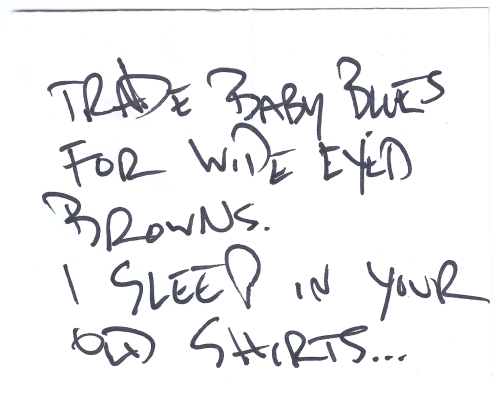 TRADE BABY BLUES
FOR WIDE EYED
BROWNS.
I SLEEP IN YOUR
OLD SHIRTS...